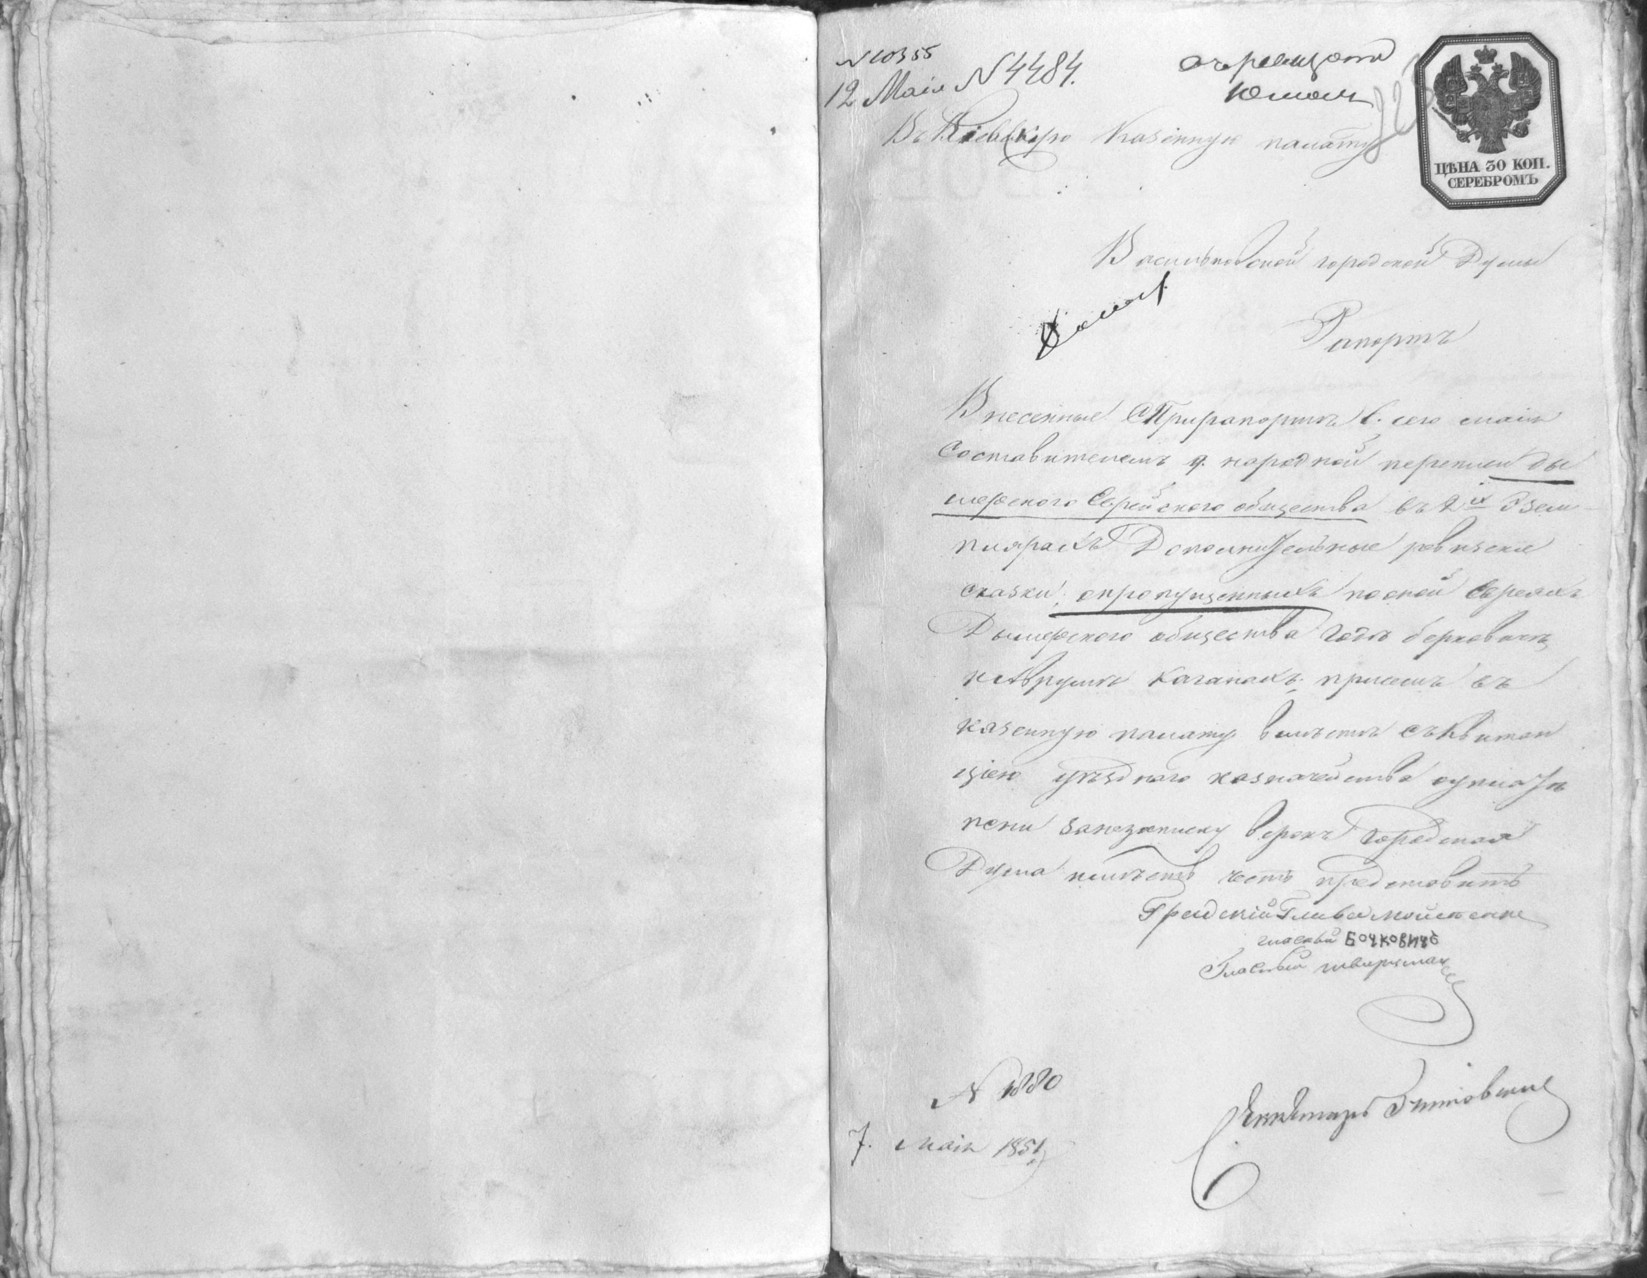 N 10355
12 Маія N 4484.
Въ Кіевскую Казенную палату
ЦѢНА 30 КОП.
СЕРЕБРОМЪ
Васильковской городской Думы
Рапортъ
Внесенные при рапортѣ 6. сего маія
Составителемъ 9. народной переписи Ды
мерского Еврейского общества въ 2х Экзем
плярахъ Дополнительные ревизскіе
сказки, о пропущенныхъ Евреяхъ
Дымерского общества Берковичѣ
и Каганахъ, въ
казенную палату вмѣстѣ съ квитан
ціею уѣздного казначейства
пени въ срокъ Городская
Дума имѣетъ честь представить
Градскій Глава Мойсеенко
гласный Бочковичь
Гласный
N 1880
7. маія 1851
Секретарь